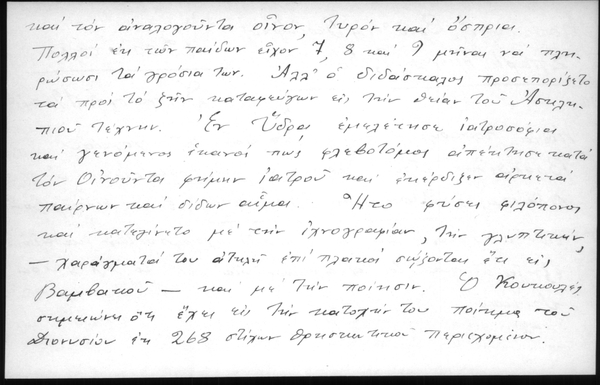 καὶ τὸν ἀναλογοῦντα οἶνον, τυρὸν καὶ ὄσπρια.
Πολλοὶ ἐκ τῶν παίδων εἶχον 7, 8 καὶ 9 μῆνας νὰ πλη-
ρώσωσι τὰ γρόσια των. Ἀλλ' ὁ διδάσκαλος προσεπορίζετο
τὰ πρὸς τὸ ζῆν καταφεύγων εἰς τὴν θείαν τοῦ Ἀσκλη-
πιοῦ τέχνην. Ἐν Ὕδρᾳ ἐμελέτησε ἰατροσόφια
καὶ γενόμενος ἱκανός πως φλεβοτόμος ἀπέκτησε κατὰ
τὸν Οἰνοῦντα φήμην ἰατροῦ καὶ ἐκέρδιζεν ἀρκετὰ
παίρνων καὶ δίδων αἷμα. Ἦτο φύσει φιλόπονος
καὶ κατεγίνετο μὲ τὴν ἰχνογραφίαν, τὴν γλυπτικήν,
— χαράγματά του ἀτελῆ ἐπὶ πλακὸς σῴζονται ἔτι εἰς
Βαμβακοῦ — καὶ μὲ τὴν ποίησιν. Ὁ Κουκουλὲς
σημειώνει ὅτι ἔχει εἰς τὴν κατοχήν του ποίημα τοῦ
Διονυσίου ἐκ 268 στίχων θρησκευτικοῦ περιεχομένου.